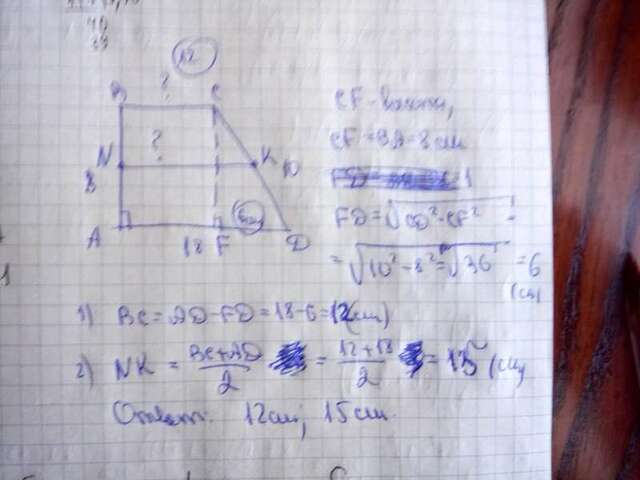 12
B ? C
N ? K 10
8
A 18 F 6см D
CF - высота,
CF = BA = 8 см
FD = √CD² - CF² =
= √10² - 8² = √36 = 6
(см)
1) BC = AD - FD = 18 - 6 = 12 (см)
2) NK = BC + AD / 2 = 12 + 18 / 2 = 15 (см)
Ответ: 12 см; 15 см.